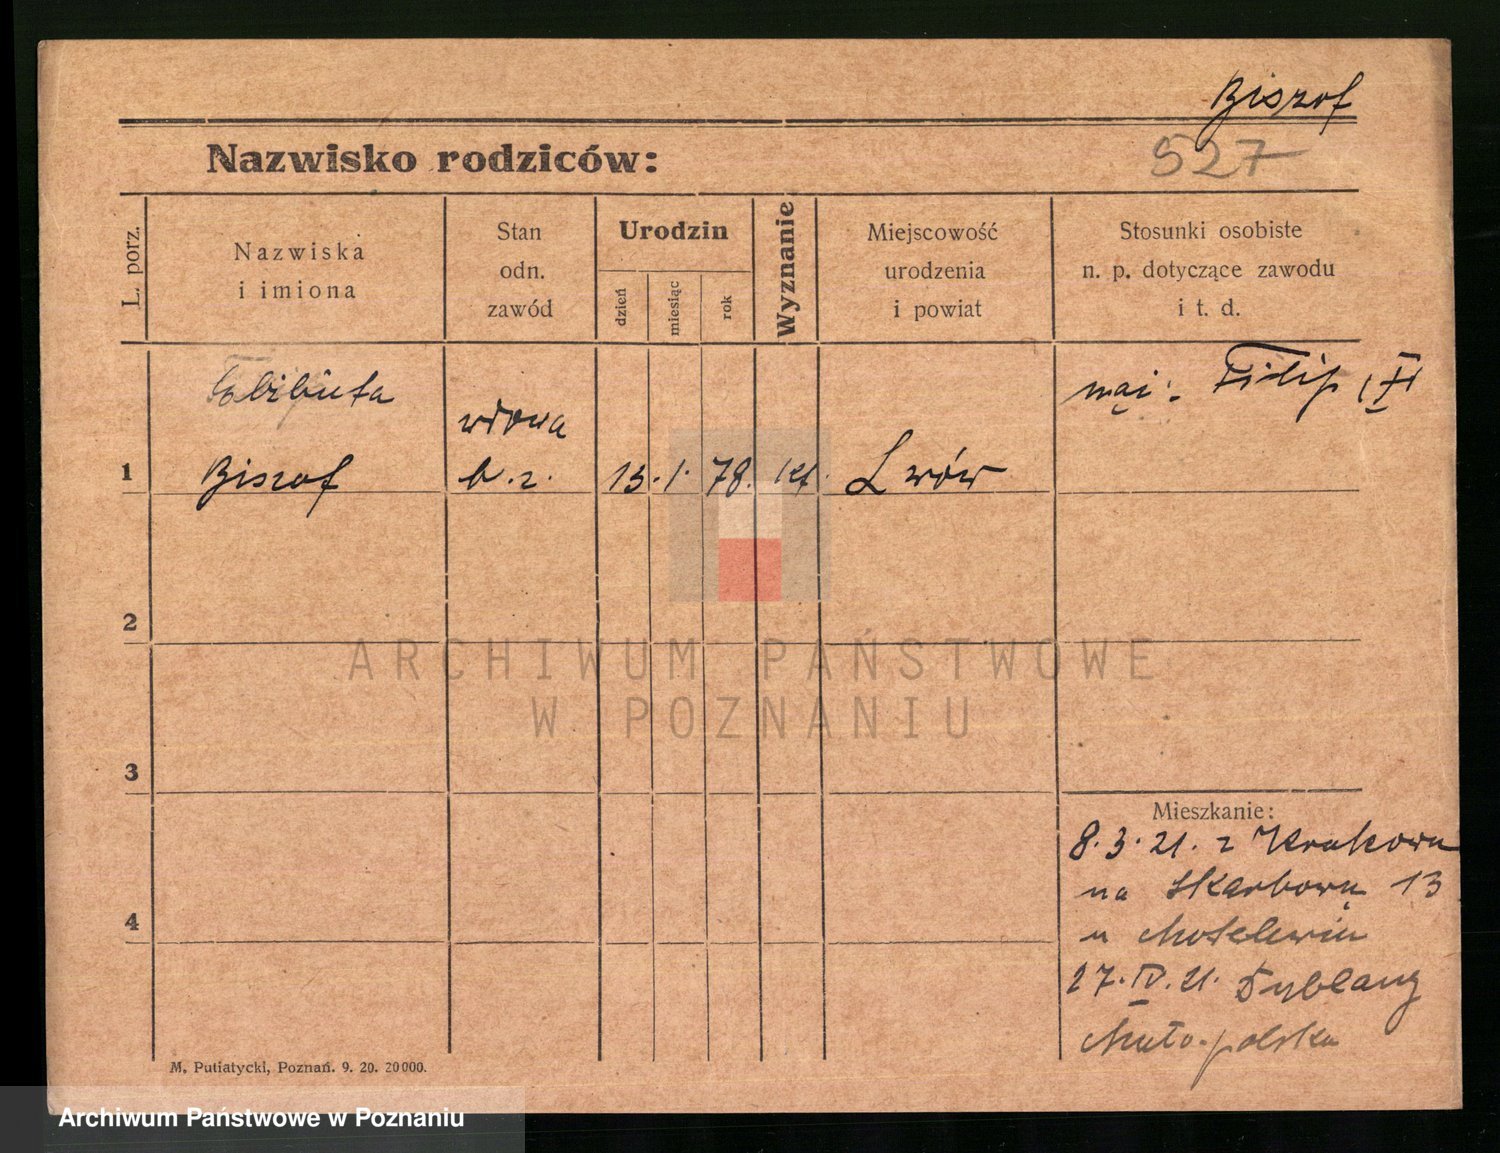 Biszof
527
Nazwisko rodziców:
L. porz.
Nazwiska
i imiona
Stan
odn.
zawód
Urodzin
dzień
miesiąc
rok
Wyznanie
Miejscowość
urodzenia
i powiat
Stosunki osobiste
n. p. dotyczące zawodu
i t. d.
wdowa
mąż: Filip
1
Biszof
b.z.
13. 1. 78. kt.
Lwów
2
ARCHIWUM PAŃSTWOWE
W POZNANIU
3
Mieszkanie:
8.3.21. z Krakowa
na Skarbową 13
4
u
27.IV.21.
Mało-polska
M. Putiatycki, Poznań. 9. 20. 20000.
Archiwum Państwowe w Poznaniu